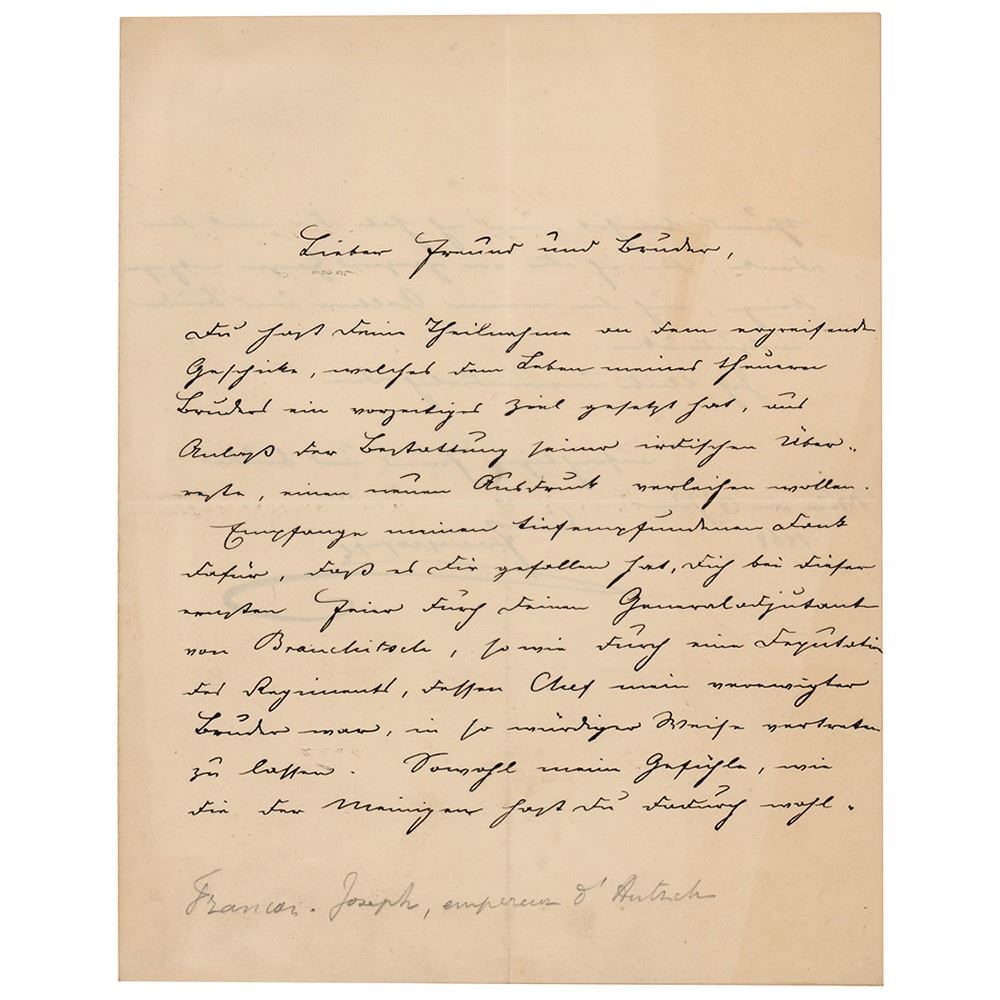 Lieber Freund und Bruder,
Du hast Deine Theilnahme an dem ergreifenden
Geschicke, welches dem Leben meines theuern
Bruders ein vorzeitiges Ziel gesetzt hat, aus
Anlaß der Bestattung seiner irdischen Über-
reste, einen neuen Ausdruck verleihen wollen.
Empfange meinen tiefempfundenen Dank
dafür, daß es Dir gefallen hat, Dich bei dieser
ernsten Feier durch Deinen Generaladjutant
von Branchitsch, sowie durch eine Deputation
des Regiments, dessen Chef mein verewigter
Bruder war, in so würdiger Weise vertreten
zu lassen. Sowohl meine Gefühle, wie
die der Meinigen hast Du dadurch wohl-
Francois-Joseph, empereur d'Autrich